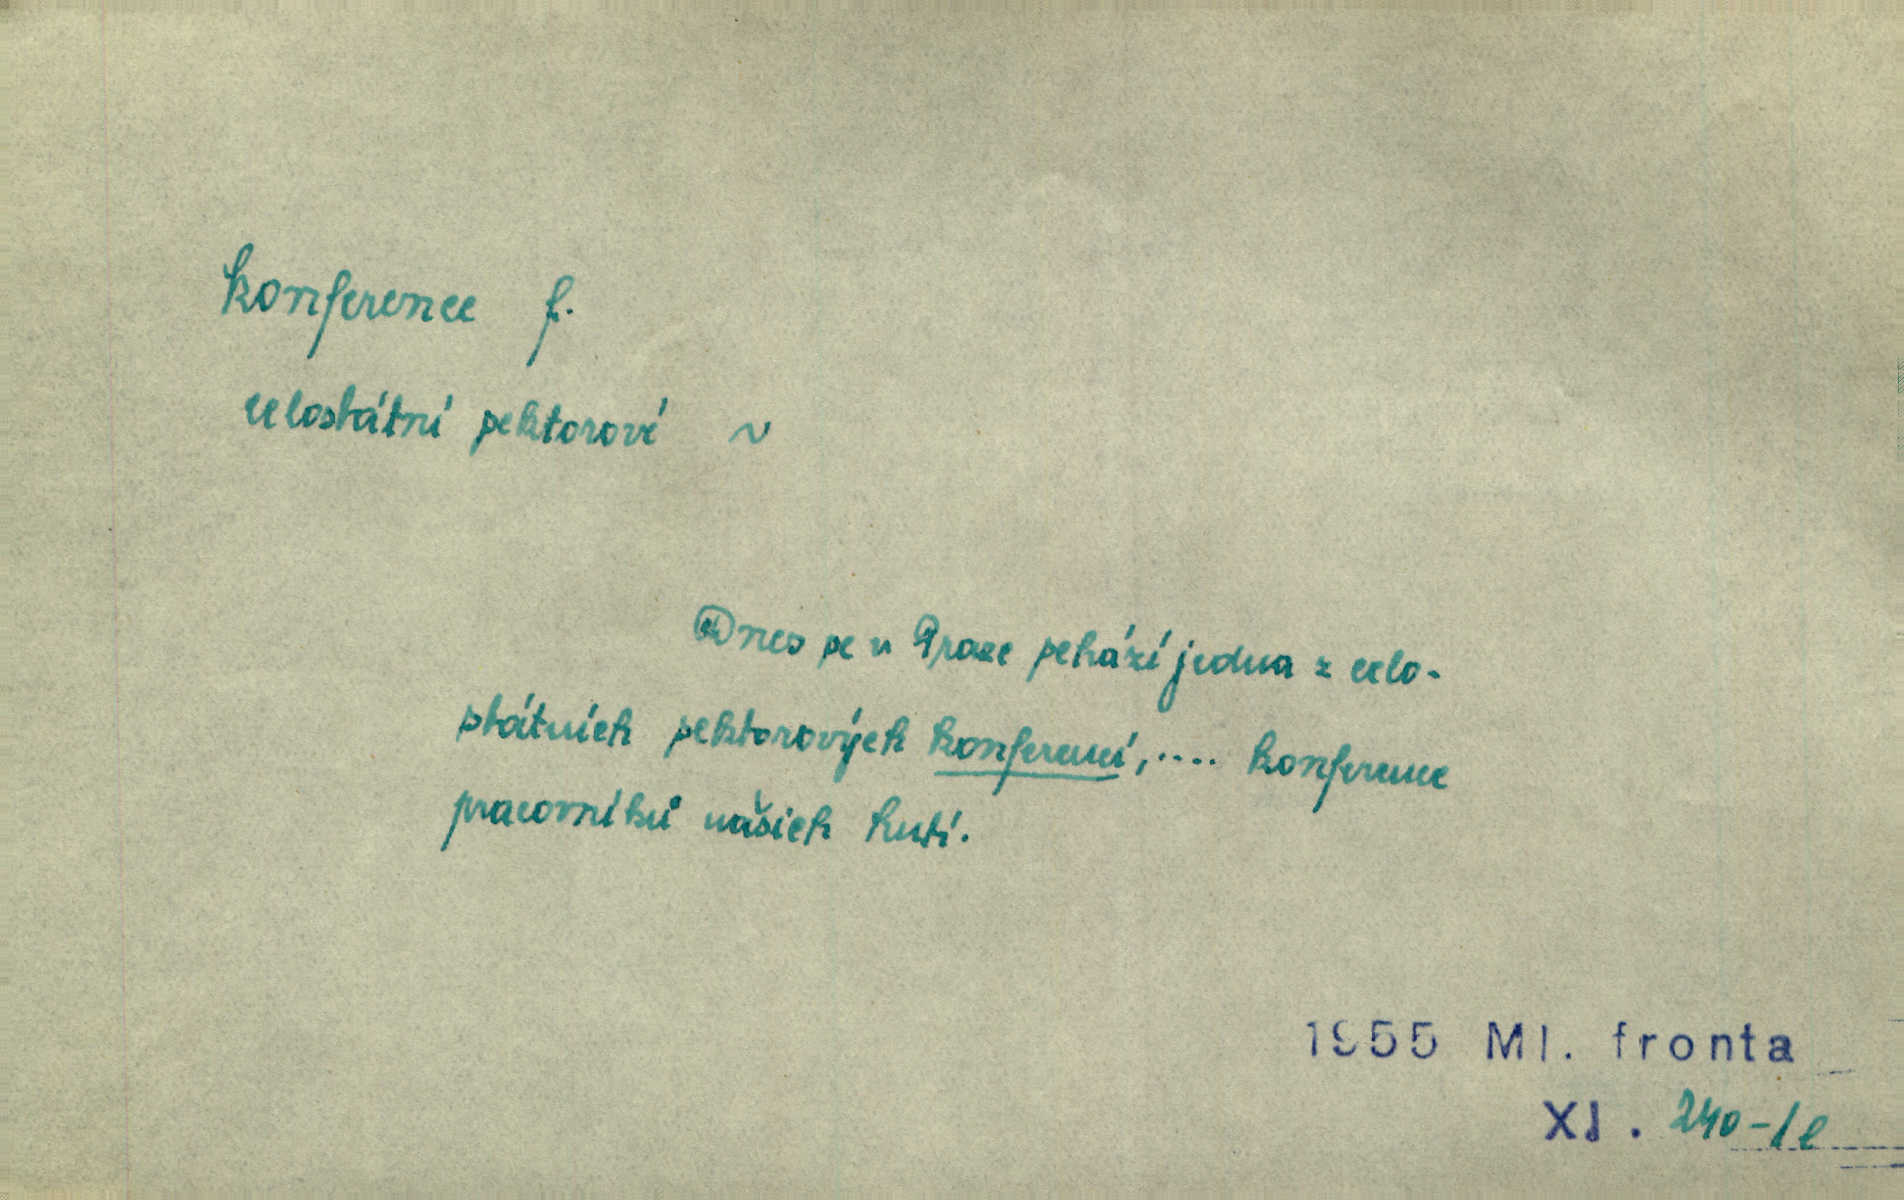 konference f.
celostátní sektorové ~
Dnes se v Praze schází jedna z celo-
státních sektorových konferencí, .... konference
pracovníků našich hutí.
1955 Ml. fronta
XI. 240-1e